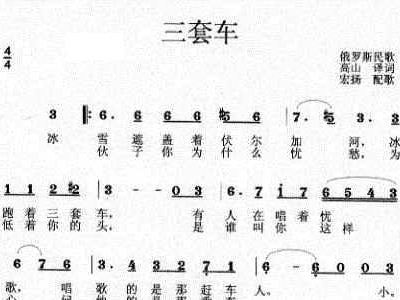 三套车
4/4
俄罗斯民歌
高山 译词
宏扬 配歌
3 6. 6 6 6 6 #5 6 7. #5 3. 3
冰 雪遮盖着伏尔加 河,冰
伙子你为什么忧 愁,为
1 1 2 #2 3 - - 0 3 6. 7 i 7 6 5 4 3
跑着三套车, 有人在唱着忧
低着你的头, 是谁叫你这样
6 7 6 3. 4 3 2 7 6 - 6 0 0 3
歌, 唱歌的是那赶车人。 小